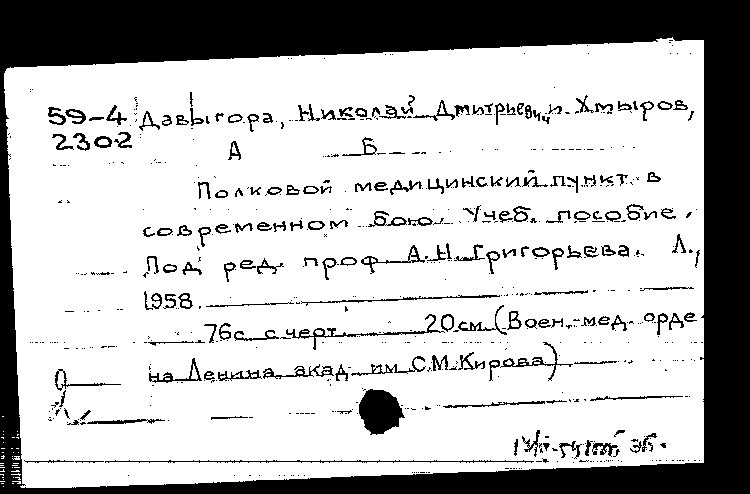 59-4 Давыгора, Николай Дмитриевич и Хмыров,
2302 А Б
Полковой медицинский пункт в
современном бою. Учеб. пособие.
Под ред. проф. А.Н. Григорьева. Л.,
1958.
76с. с черт. 20см. (Воен.-мед. орде-
на Ленина акад. им С.М. Кирова)
2